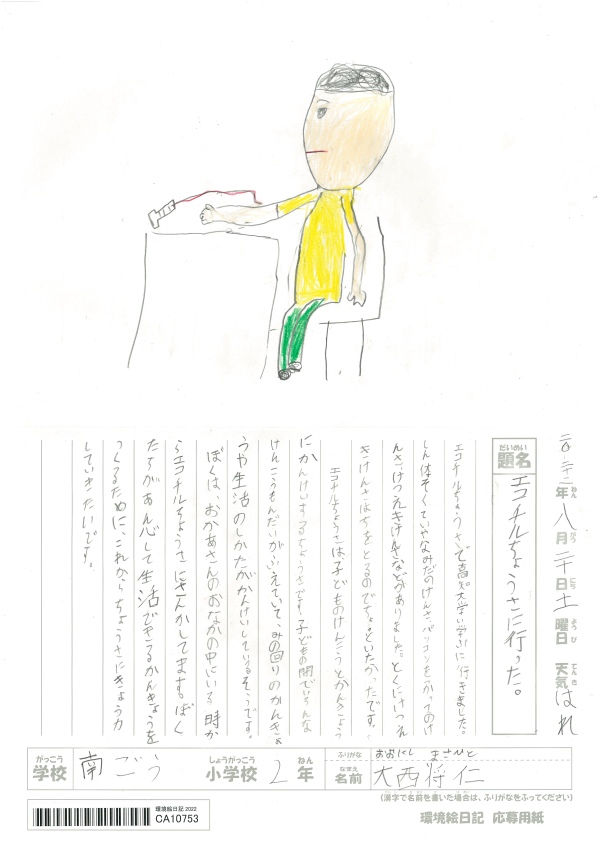 二〇二二年八月二十日土曜日 天気はれ
ねん がつ にち ようび てんき
だいめい
題名 エコチルちょうさに行った。
エコチルちょうさで高知大学い学ぶに行きました。
しん体そくていやなみだのけんさ、パソコンをつかってのけ
んさ、けつえきけんさなどがありました。とくにけつえ
きけんさは、ちをとるのでちょっといたかったです。
エコチルちょうさは、子どものけんこうとかんきょう
にかんけいするちょうさです。子どもの間でいろんな
けんこうもんだいがふえていて、みの回りのかんきょ
うや生活のしかたがかんけいしているそうです。
ぼくは、おかあさんのおなかの中にいる時か
らエコチルちょうさにさんかしてます。ぼく
たちがあん心して生活できるかんきょうを
つくるために、これからもちょうさにきょう力
していきたいです。
がっこう
学校 南ごう
しょうがっこう ねん
小学校 2年
ふりがな おおにし まさひと
なまえ
名前 大西将仁
(漢字で名前を書いた場合は、ふりがなをふってください)
環境絵日記 2022
CA10753
環境絵日記 応募用紙